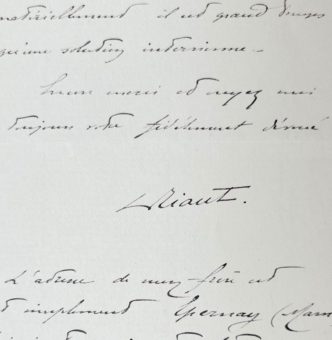 matériellement il est grand temps
qu'une solution intervienne.
encore merci et croyez moi
toujours votre fidèlement dévoué
Riant.
L'adresse de mon frère est
simplement Epernay (Marn